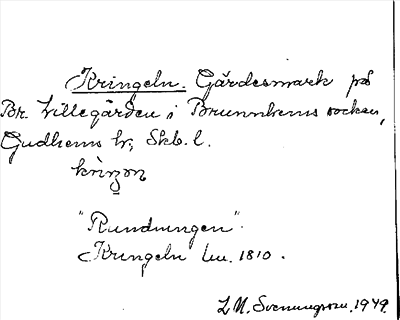 Kringeln. Gärdesmark på
Br. Lillegården i Brunnhems socken,
Gudhems hd, Skb. l.
"Rundningen".
Kringeln lm. 1810.
L. M. Svenungsson. 1949.